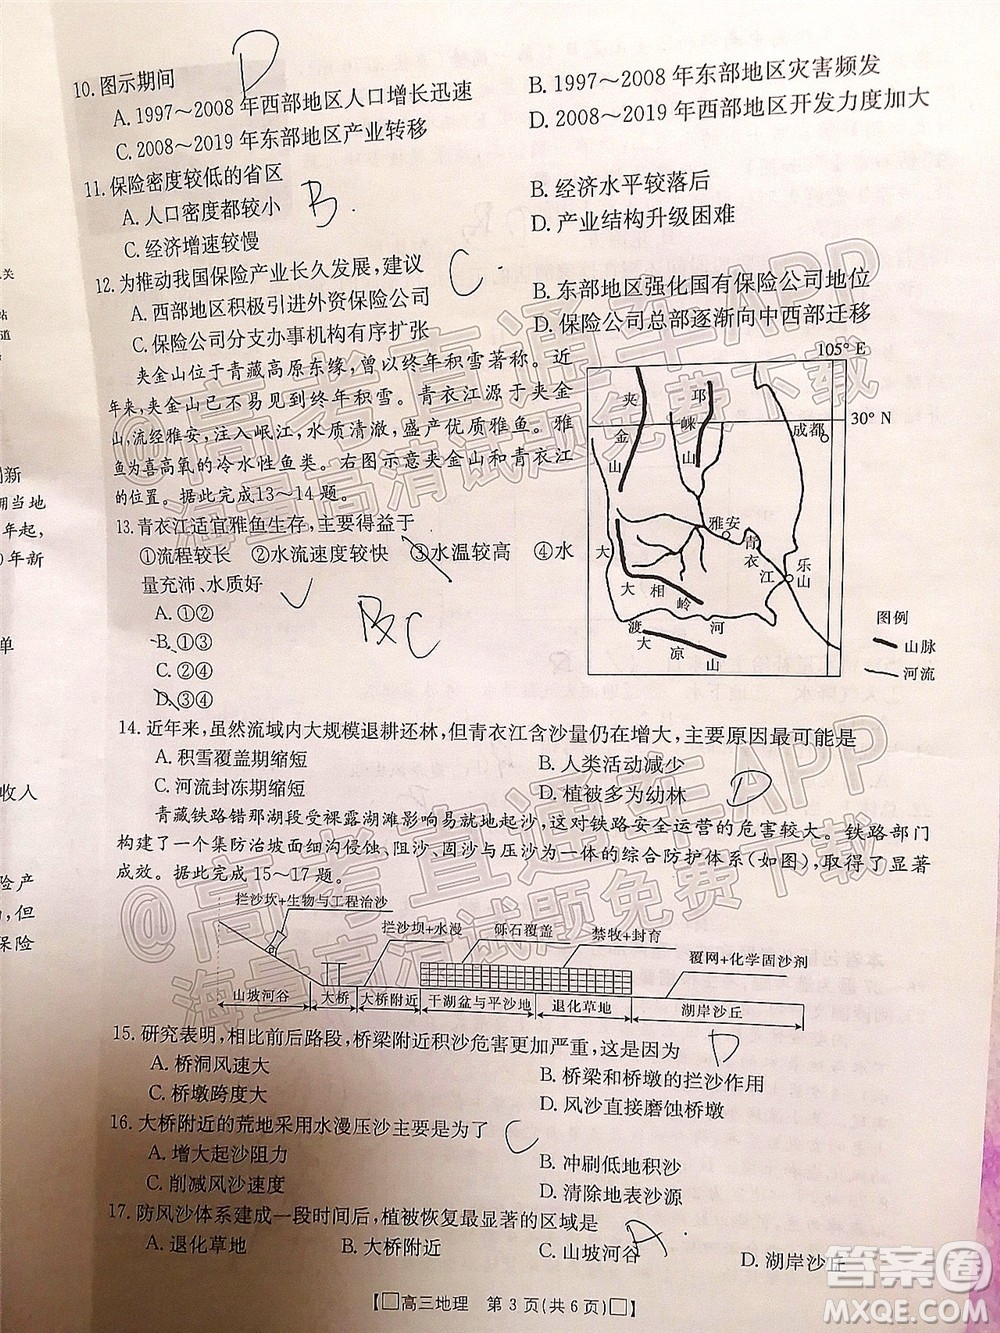 10. 图示期间
D
A. 1997～2008 年西部地区人口增长迅速
B. 1997～2008 年东部地区灾害频发
C. 2008～2019 年东部地区产业转移
D. 2008～2019 年西部地区开发力度加大
11. 保险密度较低的省区
B.
A. 人口密度都较小
B. 经济水平较落后
C. 经济增速较慢
D. 产业结构升级困难
12. 为推动我国保险产业长久发展，建议
C
A. 西部地区积极引进外资保险公司
B. 东部地区强化国有保险公司地位
C. 保险公司分支办事机构有序扩张
D. 保险公司总部逐渐向中西部迁移
夹金山位于青藏高原东缘，以终年积雪著称。近
年来，夹金山已很难见到终年积雪。青衣江源于夹金
山，流经雅安，汇入岷江，水质清澈，盛产优质雅鱼。雅
鱼为喜高氧的冷水性鱼类。右图示意夹金山和青衣江
的位置。据此完成13～14题。
13. 青衣江适宜雅鱼生存，主要得益于
①流程较长 ②水流速度较快 ③水温较高 ④水
量充沛、水质好
A. ①②
B. ①③
C. ②④
D. ③④
C
105° E
30° N
夹金山
邛崃山
成都
雅安
青衣江
乐山
大相岭
大渡河
大凉山
图例
山脉
河流
14. 近年来，虽然流域内大规模退耕还林，但青衣江含沙量仍在增大，主要原因最可能是
A. 积雪覆盖期缩短
B. 人类活动减少
C. 河流封冻期缩短
D. 植被多为幼林
D
青藏铁路错那湖段受裸露湖滩影响易就地起沙，这对铁路安全运营的危害较大。铁路部门
构建了一个集防治坡面细沟侵蚀、阻沙、固沙与压沙为一体的综合防护体系（如图），取得了显著
成效。据此完成15～17题。
拦沙坎+生物与工程治沙
拦沙坝+水漫
砾石覆盖
禁牧+封育
覆网+化学固沙剂
山坡河谷
大桥
大桥附近
干湖盆与平沙地
退化草地
湖岸沙丘
15. 研究表明，相比前后路段，桥梁附近积沙危害更加严重，这是因为
D
A. 桥洞风速大
B. 桥梁和桥墩的拦沙作用
C. 桥墩跨度大
D. 风沙直接磨蚀桥墩
16. 大桥附近的荒地采用水漫压沙主要是为了
C
A. 增大起沙阻力
B. 冲刷低地积沙
C. 削减风沙速度
D. 清除地表沙源
17. 防风沙体系建成一段时间后，植被恢复最显著的区域是
A
A. 退化草地
B. 大桥附近
C. 山坡河谷
D. 湖岸沙丘
【□高三地理 第 3 页(共 6 页)□】
关
站
道
刊新
年起
年新
单
收入
险产
，但
保险
@高考直通车APP
海量高清试题免费下载
@高考直通车APP
海量高清试题免费下载
答案圈
MXQE.COM